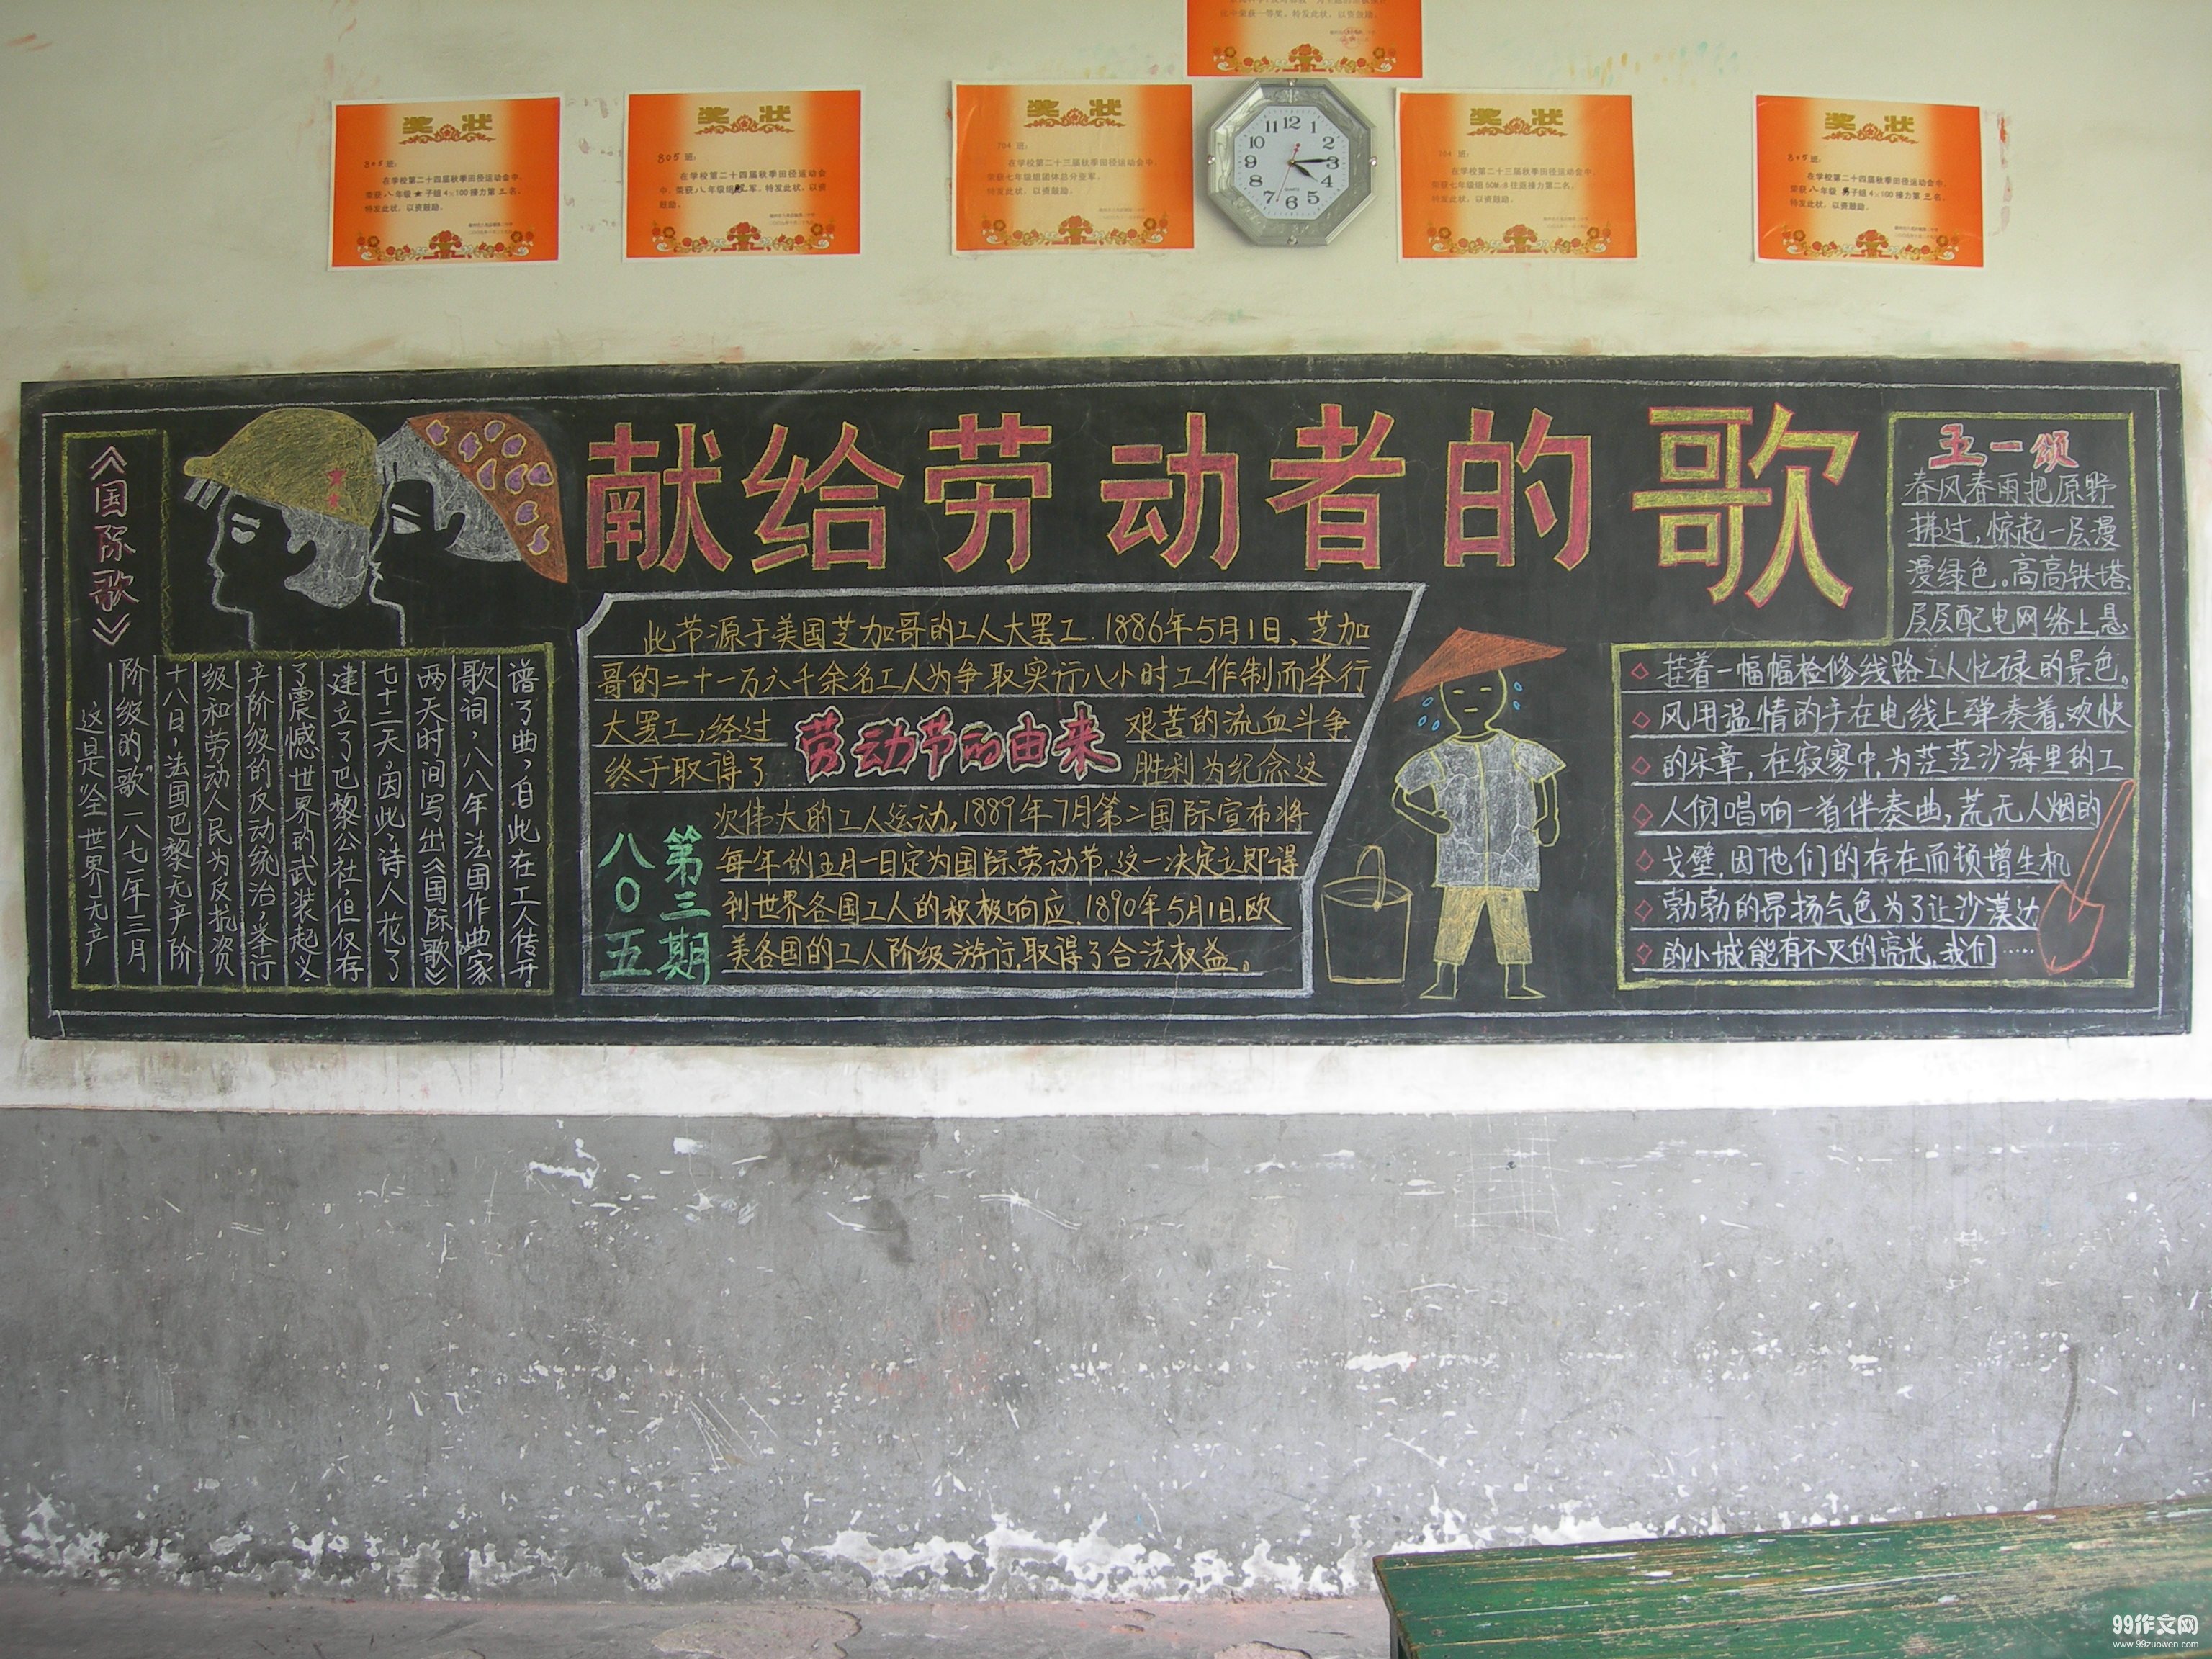 奖状
805班:
在学校第二十四届秋季田径运动会中,
荣获八年级女子组4×100接力第三名,
特发此状,以资鼓励。
奖状
805班:
在学校第二十四届秋季田径运动会
中,荣获八年级组
军,特发此状,以资
鼓励。
奖状
704班:
在学校第二十三届秋季田径运动会中,
荣获七年级组团体总分亚军。
特发此状,以资鼓励。
比中荣获一等奖。特发此状,以资鼓励。
12 1 2 3 4 5 6 7 8 9 10 11
QUARTZ
奖状
704班:
在学校第二十三届秋季田径运动会中,
荣获七年级组50M×8往返接力第二名。
特发此状,以资鼓励。
奖状
805班:
在学校第二十四届秋季田径运动会中,
荣获八年级男子组4×100接力第三名,
特发此状,以资鼓励。
献给劳动者的歌
《国际歌》
这是“全世界无产
阶级的歌”一八七一年三月
十八日,法国巴黎无产阶
级和劳动人民为反抗资
产阶级的反动统治,举行
了震憾世界的武装起义,
建立了巴黎公社,但仅存
七十二天。因此,诗人花了
两天时间写出《国际歌》
歌词,八八年法国作曲家
谱了曲,自此在工人传开。
此节源于美国芝加哥的工人大罢工.1886年5月1日,芝加
哥的二十一万六千余名工人为争取实行八小时工作制而举行
大罢工,经过
艰苦的流血斗争
终于取得了
胜利为纪念这
劳动节的由来
次伟大的工人运动,1889年7月第二国际宣布将
每年的五月一日定为国际劳动节,这一决定立即得
到世界各国工人的积极响应.1890年5月1日,欧
美各国的工人阶级游行,取得了合法权益。
第三期
八〇五
五一颂
春风春雨把原野
拂过,惊起一层漫
漫绿色。高高铁塔
层层配电网络上,悬
挂着一幅幅检修线路工人忙碌的景色。
风用温情的手在电线上弹奏着欢快
的乐章,在寂寥中,为茫茫沙海里的工
人们唱响一首伴奏曲,荒无人烟的
戈壁,因他们的存在而顿增生机
勃勃的昂扬气色.为了让沙漠边
的小城能有不灭的亮光,我们……
99作文网
www.99zuowen.com